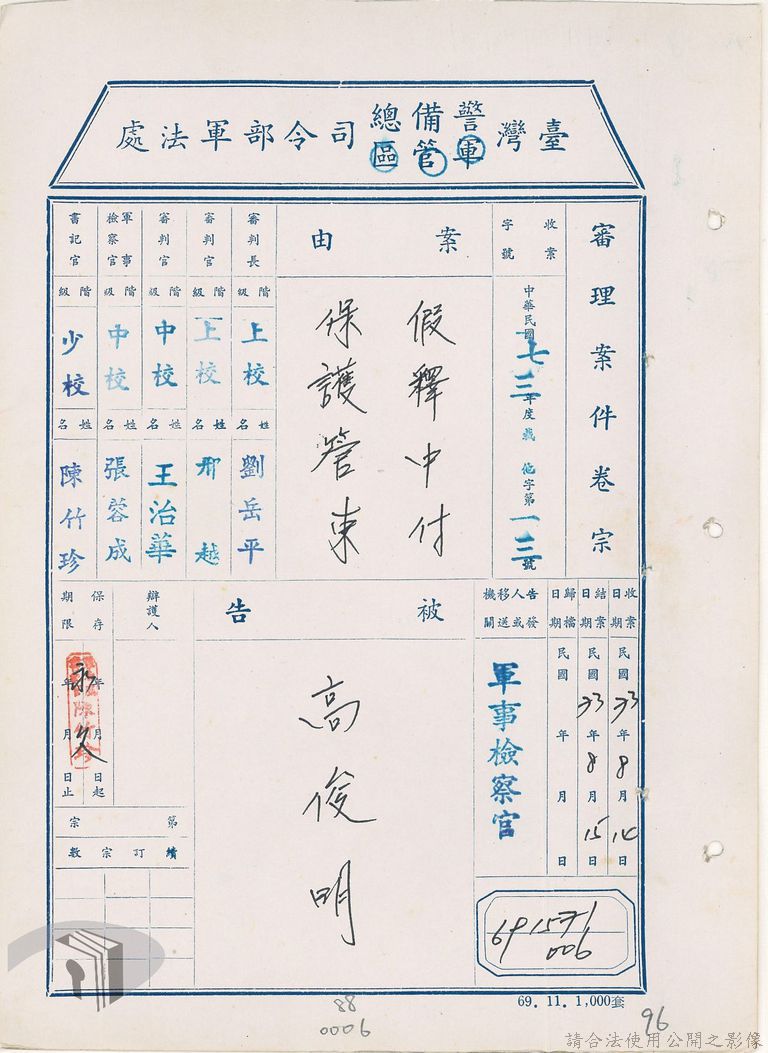 臺灣警備總司令部軍法處
軍管區
審理案件卷宗
收案字號
中華民國七三年度 他字第一三號
案由
假釋中付
保護管束
審判長
階級
上校
姓名
劉岳平
審判官
階級
上校
姓名
邢越
審判官
階級
中校
姓名
王治華
軍事檢察官
階級
中校
姓名
張蓉成
書記官
階級
少校
姓名
陳竹珍
收案日期
民國73年8月14日
結案日期
民國73年8月15日
歸檔日期
民國 年 月 日
告發人或移送機關
軍事檢察官
被告
高俊明
辯護人
保存期限
年 月 日起
年 月 日止
永久
陳竹珍
第 宗
續訂宗數
691571
006
69.11.1,000套
88
0006
96
請合法使用公開之影像